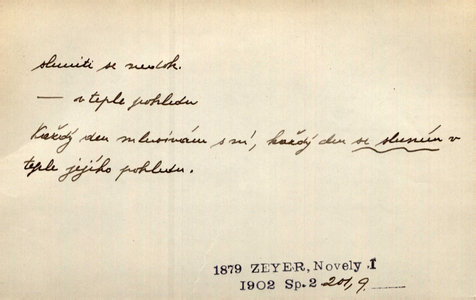 sluniti se nedok.
— v teple pohledu
Každý den mluvívám s ní, každý den se sluním v
teple jejího pohledu.
1879 ZEYER, Novely I
1902 Sp. 2 201,9